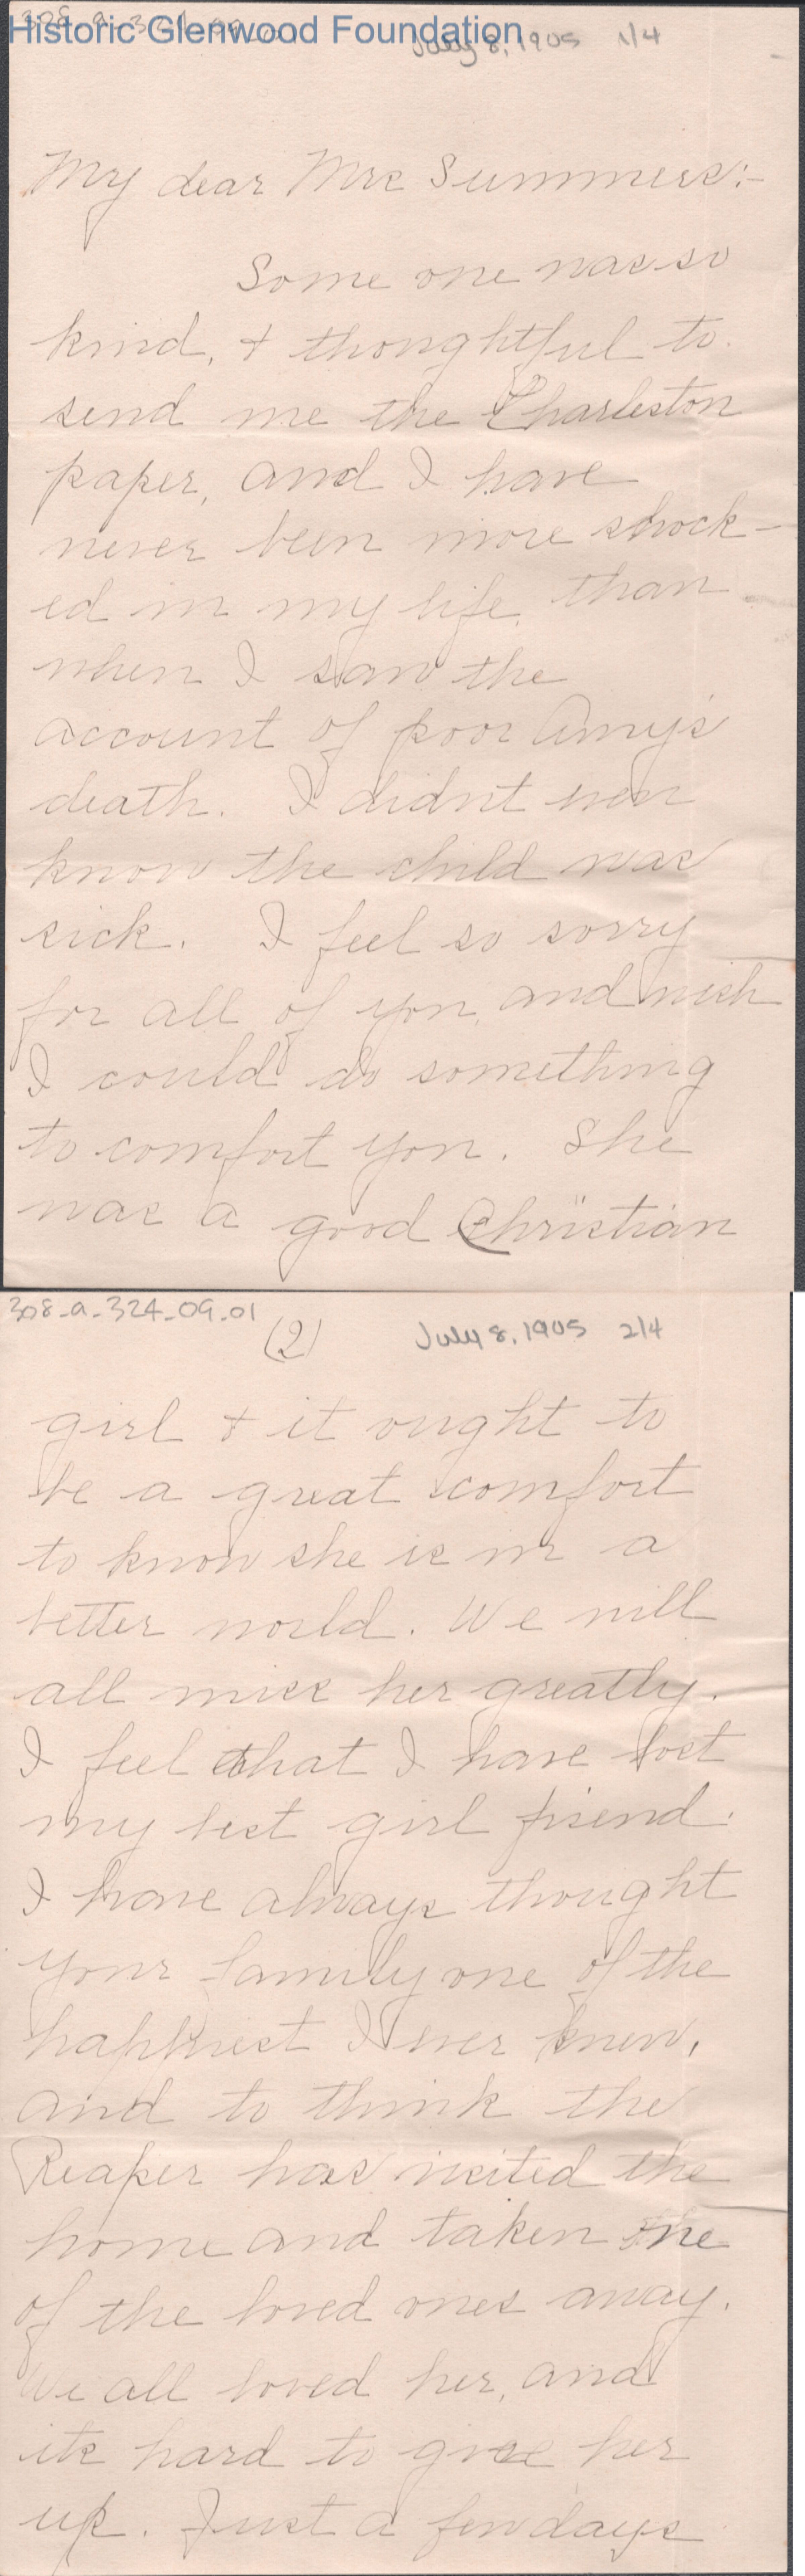 Historic Glenwood Foundation
July 8, 1905 1/4
My dear Mrs Summers:-
Some one was so
kind, & thoughtful to
send me the Charleston
paper, and I have
never been more shock-
ed in my life, than
when I saw the
account of poor Amy's
death. I didnt even
know the child was
sick. I feel so sorry
for all of you, and wish
I could do something
to comfort you. She
was a good Christian
308-a-324-09-01
(2) July 8, 1905 2/4
girl & it ought to
be a great comfort
to know she is in a
better world. We will
all miss her greatly.
I feel that I have lost
my best girl friend.
I have always thought
your family one of the
happiest I ever knew,
and to think the
Reaper has visited the
home and taken one
of the loved ones away.
We all loved her, and
its hard to give her
up. Just a few days